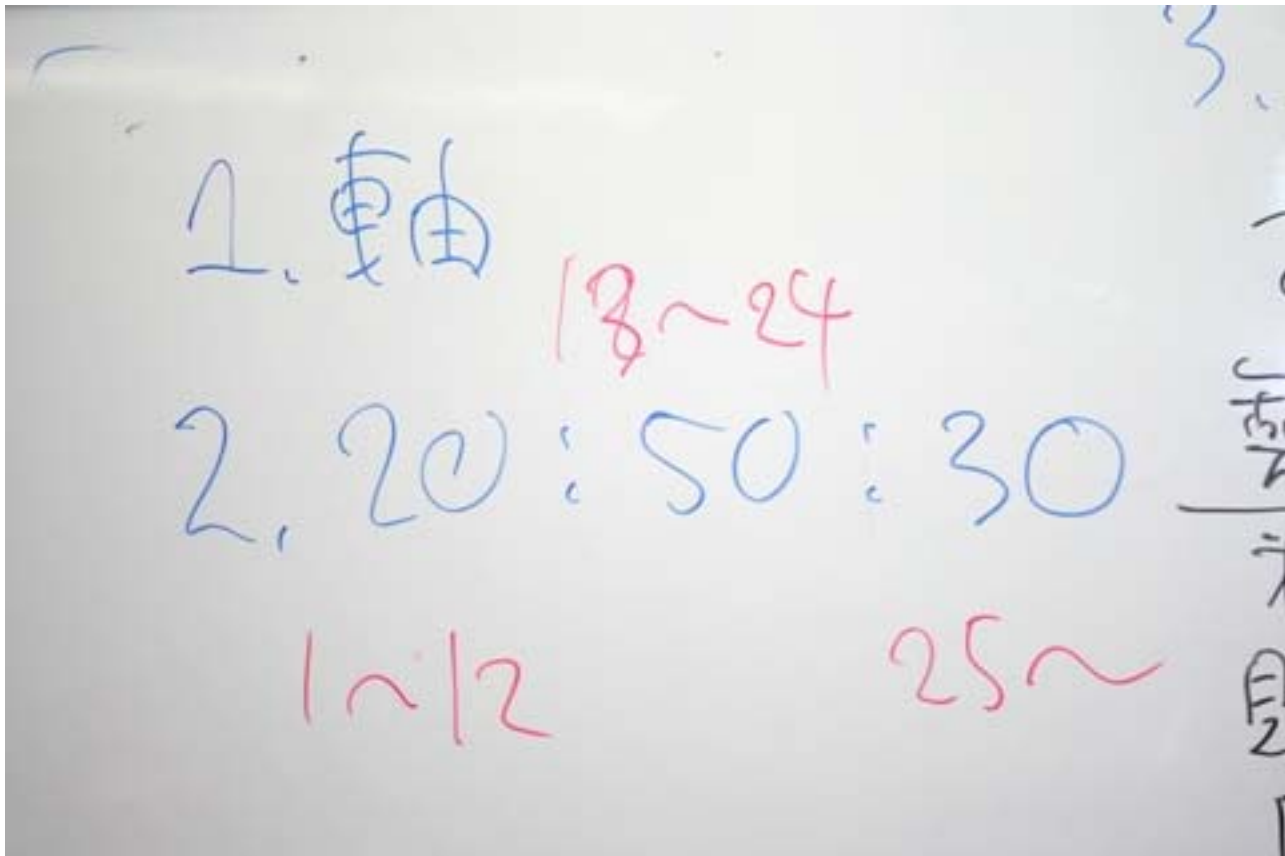 1. 軸
18~24
2. 20:50:30
1~12
25~
3.